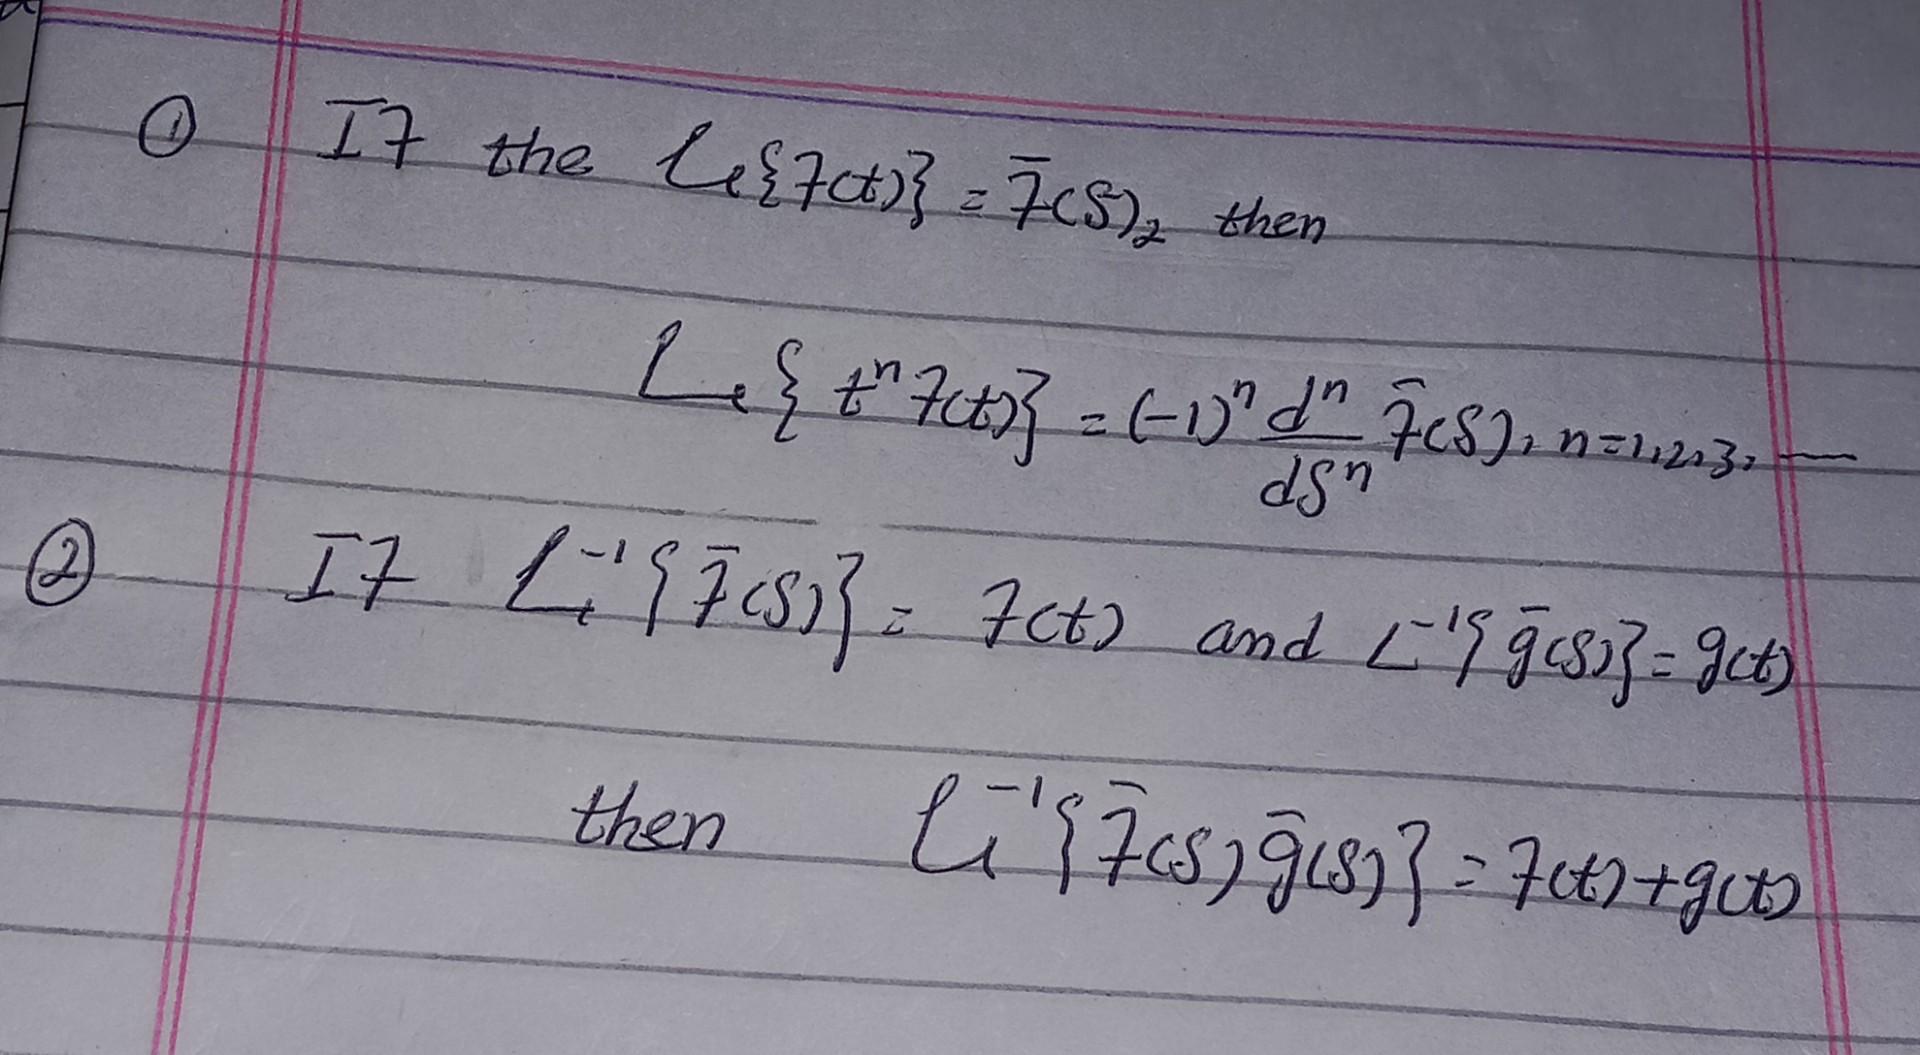 ① If the L{f(t)} = f̄(s), then
L{tⁿ f(t)} = (-1)ⁿ dⁿ/dsⁿ f̄(s), n=1,2,3, —
② If L⁻¹{f̄(s)} = f(t) and L⁻¹{ḡ(s)} = g(t)
then L⁻¹{f̄(s) ḡ(s)} = f(t)+g(t)